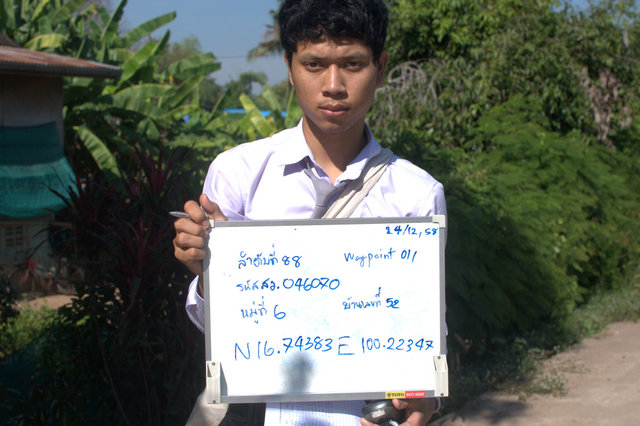 24/12, 58
ลำดับที่ 88 Waypoint 011
รหัส สว. 046070
หมู่ที่ 6 บ้านเลขที่ 52
N 16.74383 E 100.22347
TOTO